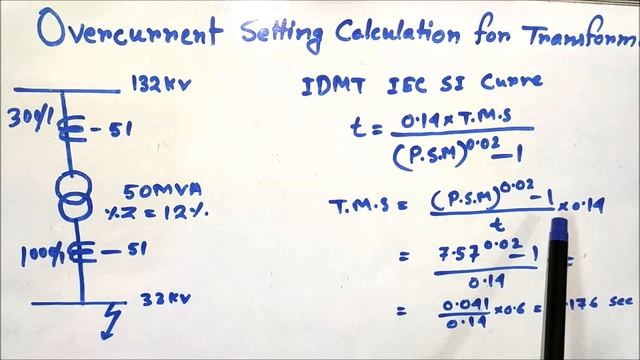 Overcurrent Setting Calculation for Transform
132kv
300/1
51
50MVA
%Z = 12%.
100%1
51
33kv
IDMT IEC SI Curve
t = 0.14 x T.M.S / (P.S.M)^0.02 - 1
T.M.S = (P.S.M)^0.02 - 1 / t x 0.14
= 7.57^0.02 - 1 / 0.14
= 0.041 / 0.14 x 0.6 = .176 sec